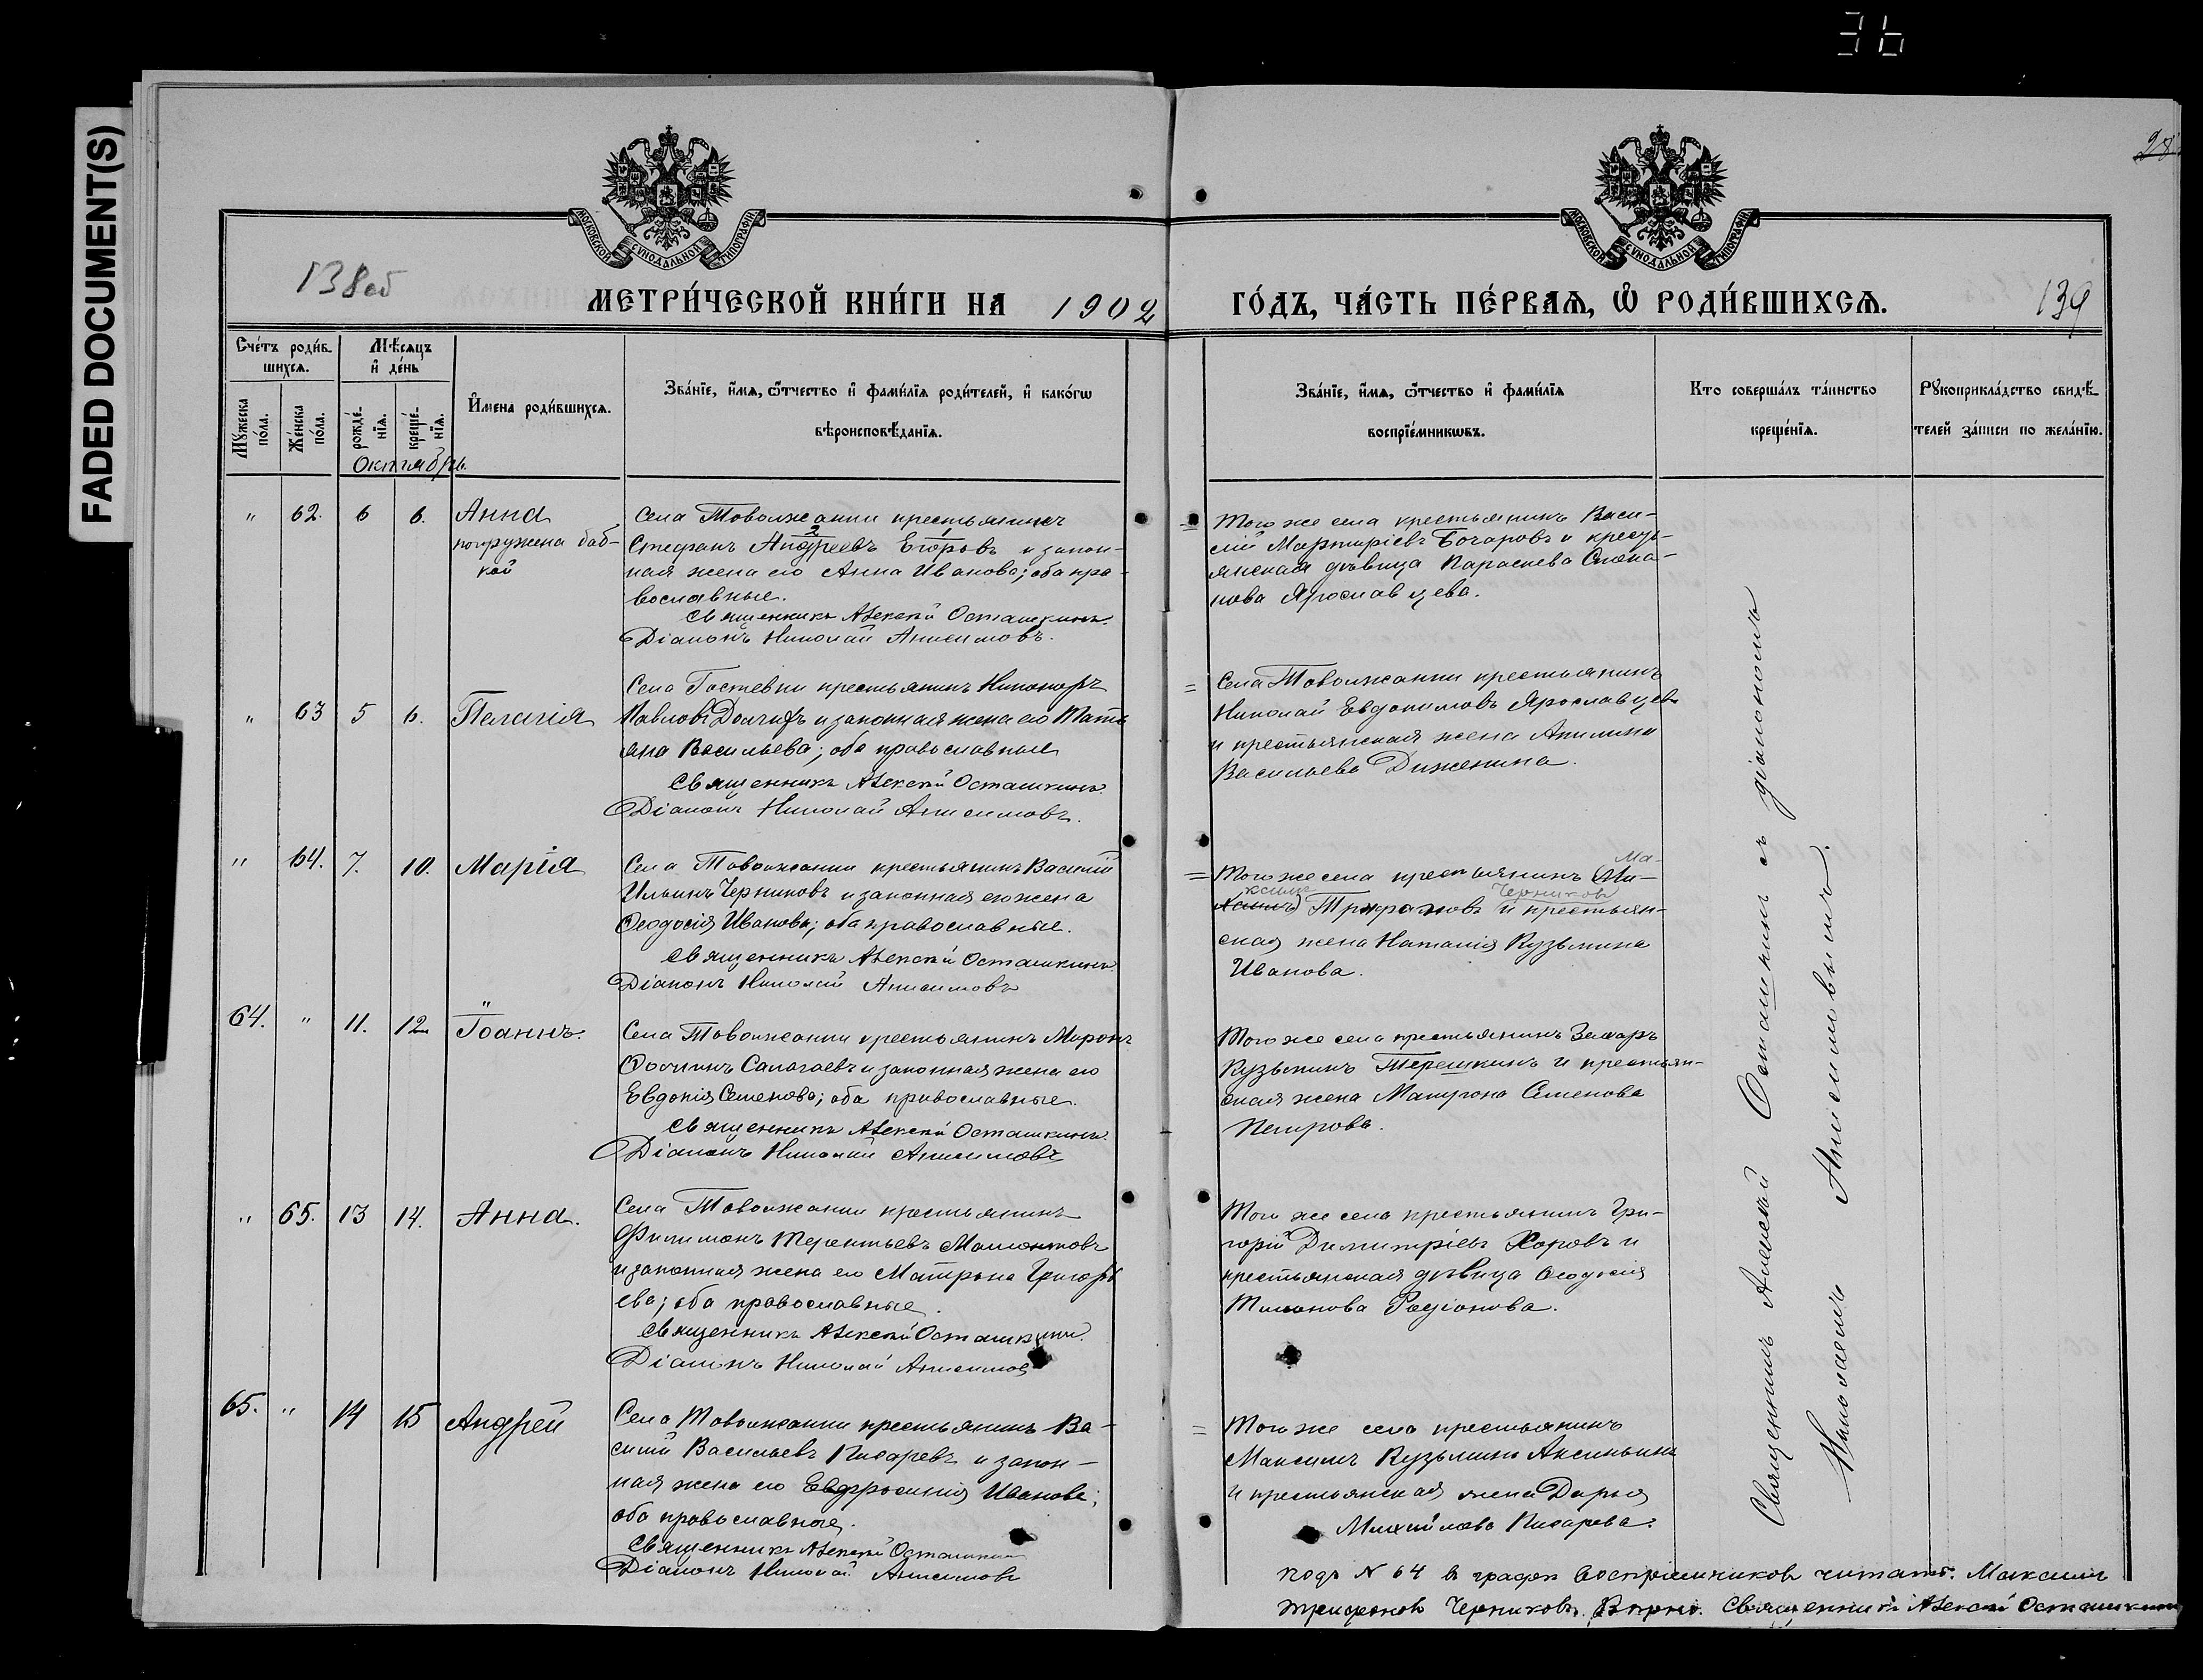 36
FADED DOCUMENT(S)
28
МОСКОВСКОЙ СѴНОДАЛЬНОЙ ТИПОГРАФІИ
МОСКОВСКОЙ СѴНОДАЛЬНОЙ ТИПОГРАФІИ
138об
МЕТРИ́ЧЕСКОЙ КНИ́ГИ НА 1902
ГО́ДЪ, ЧА́СТЬ ПЕ́РВАѦ, Ѡ҆ РОДИ́ВШИХСѦ.
139
Сче́тъ роди́в-
шихсѧ.
Мѣ́сяцъ
и҆ де́нь
Мꙋ́жеска
по́ла.
Же́нска
по́ла.
рожде́-
нїѧ.
креще́-
нїѧ.
И҆мена роди́вшихсѧ.
Зва́нїе, и҆́мѧ, ѻ҆́тчество и҆ фами́лїѧ роди́телей, и҆ како́гѡ
вѣроисповѣ́данїѧ.
Зва́нїе, и҆́мѧ, ѻ҆́тчество и҆ фами́лїѧ
воспрїе́мникѡвъ.
Кто соверша́лъ та́инство
креще́нїѧ.
Рꙋкоприкла́дство свидѣ́-
телей за́писи по жела́нїю.
Октябрь.
" 62. 6 6. Анна
погружена баб-
кой
Села Товолжанки крестьянинъ
Стефанъ Андреевъ Егоровъ и закон-
ная жена его Анна Иванова; оба пра-
вославные.
Священникъ Алексѣй Осташкинъ.
Діаконъ Николай Анисимовъ.
Того же села крестьянинъ Васи-
лій Мартиріевъ Бочаровъ и кресть-
янская дѣвица Параскева
Ярославцева.
" 63 5 6. Пелагія
Села Гостевки крестьянинъ Никаноръ
Павловъ и законная жена его Тать-
яна Васильева; оба православные
Священникъ Алексѣй Осташкинъ.
Діаконъ Николай Анисимовъ.
Села Товолжанки крестьянинъ
Николай Евдокимовъ Ярославцевъ
и крестьянская жена Акилина
Васильева Диженина.
" 64. 7. 10. Марія
Села Товолжанки крестьянинъ Василій
Ильинъ Черниковъ и законная его жена
Ѳеодосія Иванова; оба православные.
Священникъ Алексѣй Осташкинъ.
Діаконъ Николай Анисимовъ
Ма-
Того же села крестьянинъ Ми-
ксимъ Черниковъ
хаилъ Трифоновъ и крестьян-
ская жена Наталія Кузьмина
Иванова.
64. " 11. 12. Іоаннъ.
Села Товолжанки крестьянинъ Миронъ
Ѳоминъ Салагаевъ и законная жена его
Евдокія Семенова; оба православные.
Священникъ Алексѣй Осташкинъ.
Діаконъ Николай Анисимовъ
Того же села крестьянинъ Захаръ
Кузьминъ Терешкинъ и крестьян-
ская жена Матрона Семенова
Петрова.
" 65. 13 14. Анна.
Села Товолжанки крестьянинъ
Филимонъ Терентьевъ Мамонтовъ
и законная жена его Матрона Григорь-
ева; оба православные.
Священникъ Алексѣй Осташкинъ.
Діаконъ Николай Анисимовъ
Того же села крестьянинъ Гри-
горій Димитріевъ Хоровъ и
крестьянская дѣвица Ѳеодосія
Родіонова.
65. " 14 15 Андрей
Села Товолжанки крестьянинъ Ва-
силій Васильевъ Писаревъ и закон-
ная жена его Евфросинія Иванова;
оба православные.
Священникъ Алексѣй Осташкинъ
Діаконъ Николай Анисимовъ
Того же села крестьянинъ
Максимъ Кузьминъ Аксиньинъ
и крестьянская жена Дарья
Михайлова Писарева.
Священникъ Алексѣй Осташкинъ съ діакономъ
Николаемъ Анисимовымъ.
подъ N 64 в графѣ воспріемниковъ читать: Максимъ
Трифоновъ Черниковъ. Вѣрно. Священникъ Алексѣй Осташкинъ